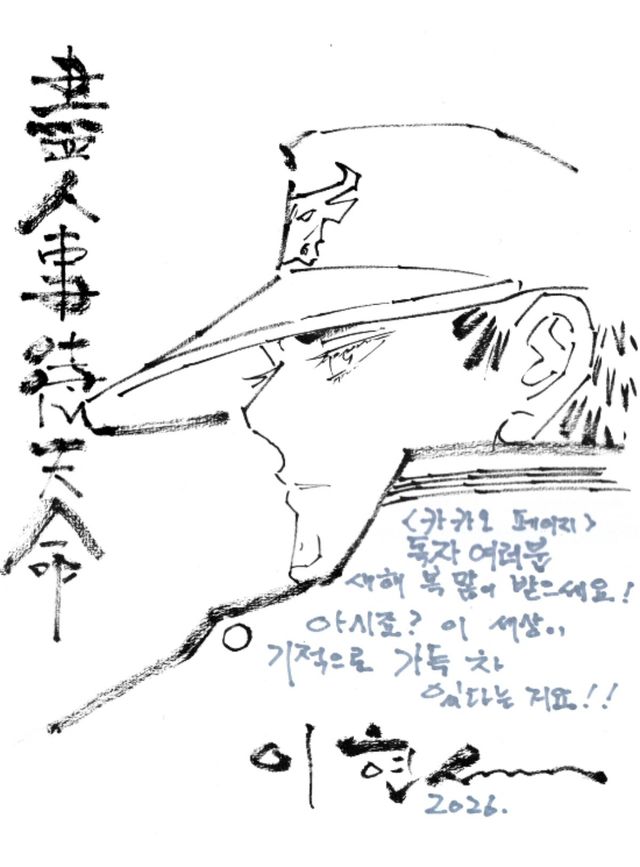 盡人事待天命
<카카오 페이지>
독자 여러분
새해 복 많이 받으세요!
아시죠? 이 세상이
기적으로 가득 차
있다는 거요!!
이현세
2026.